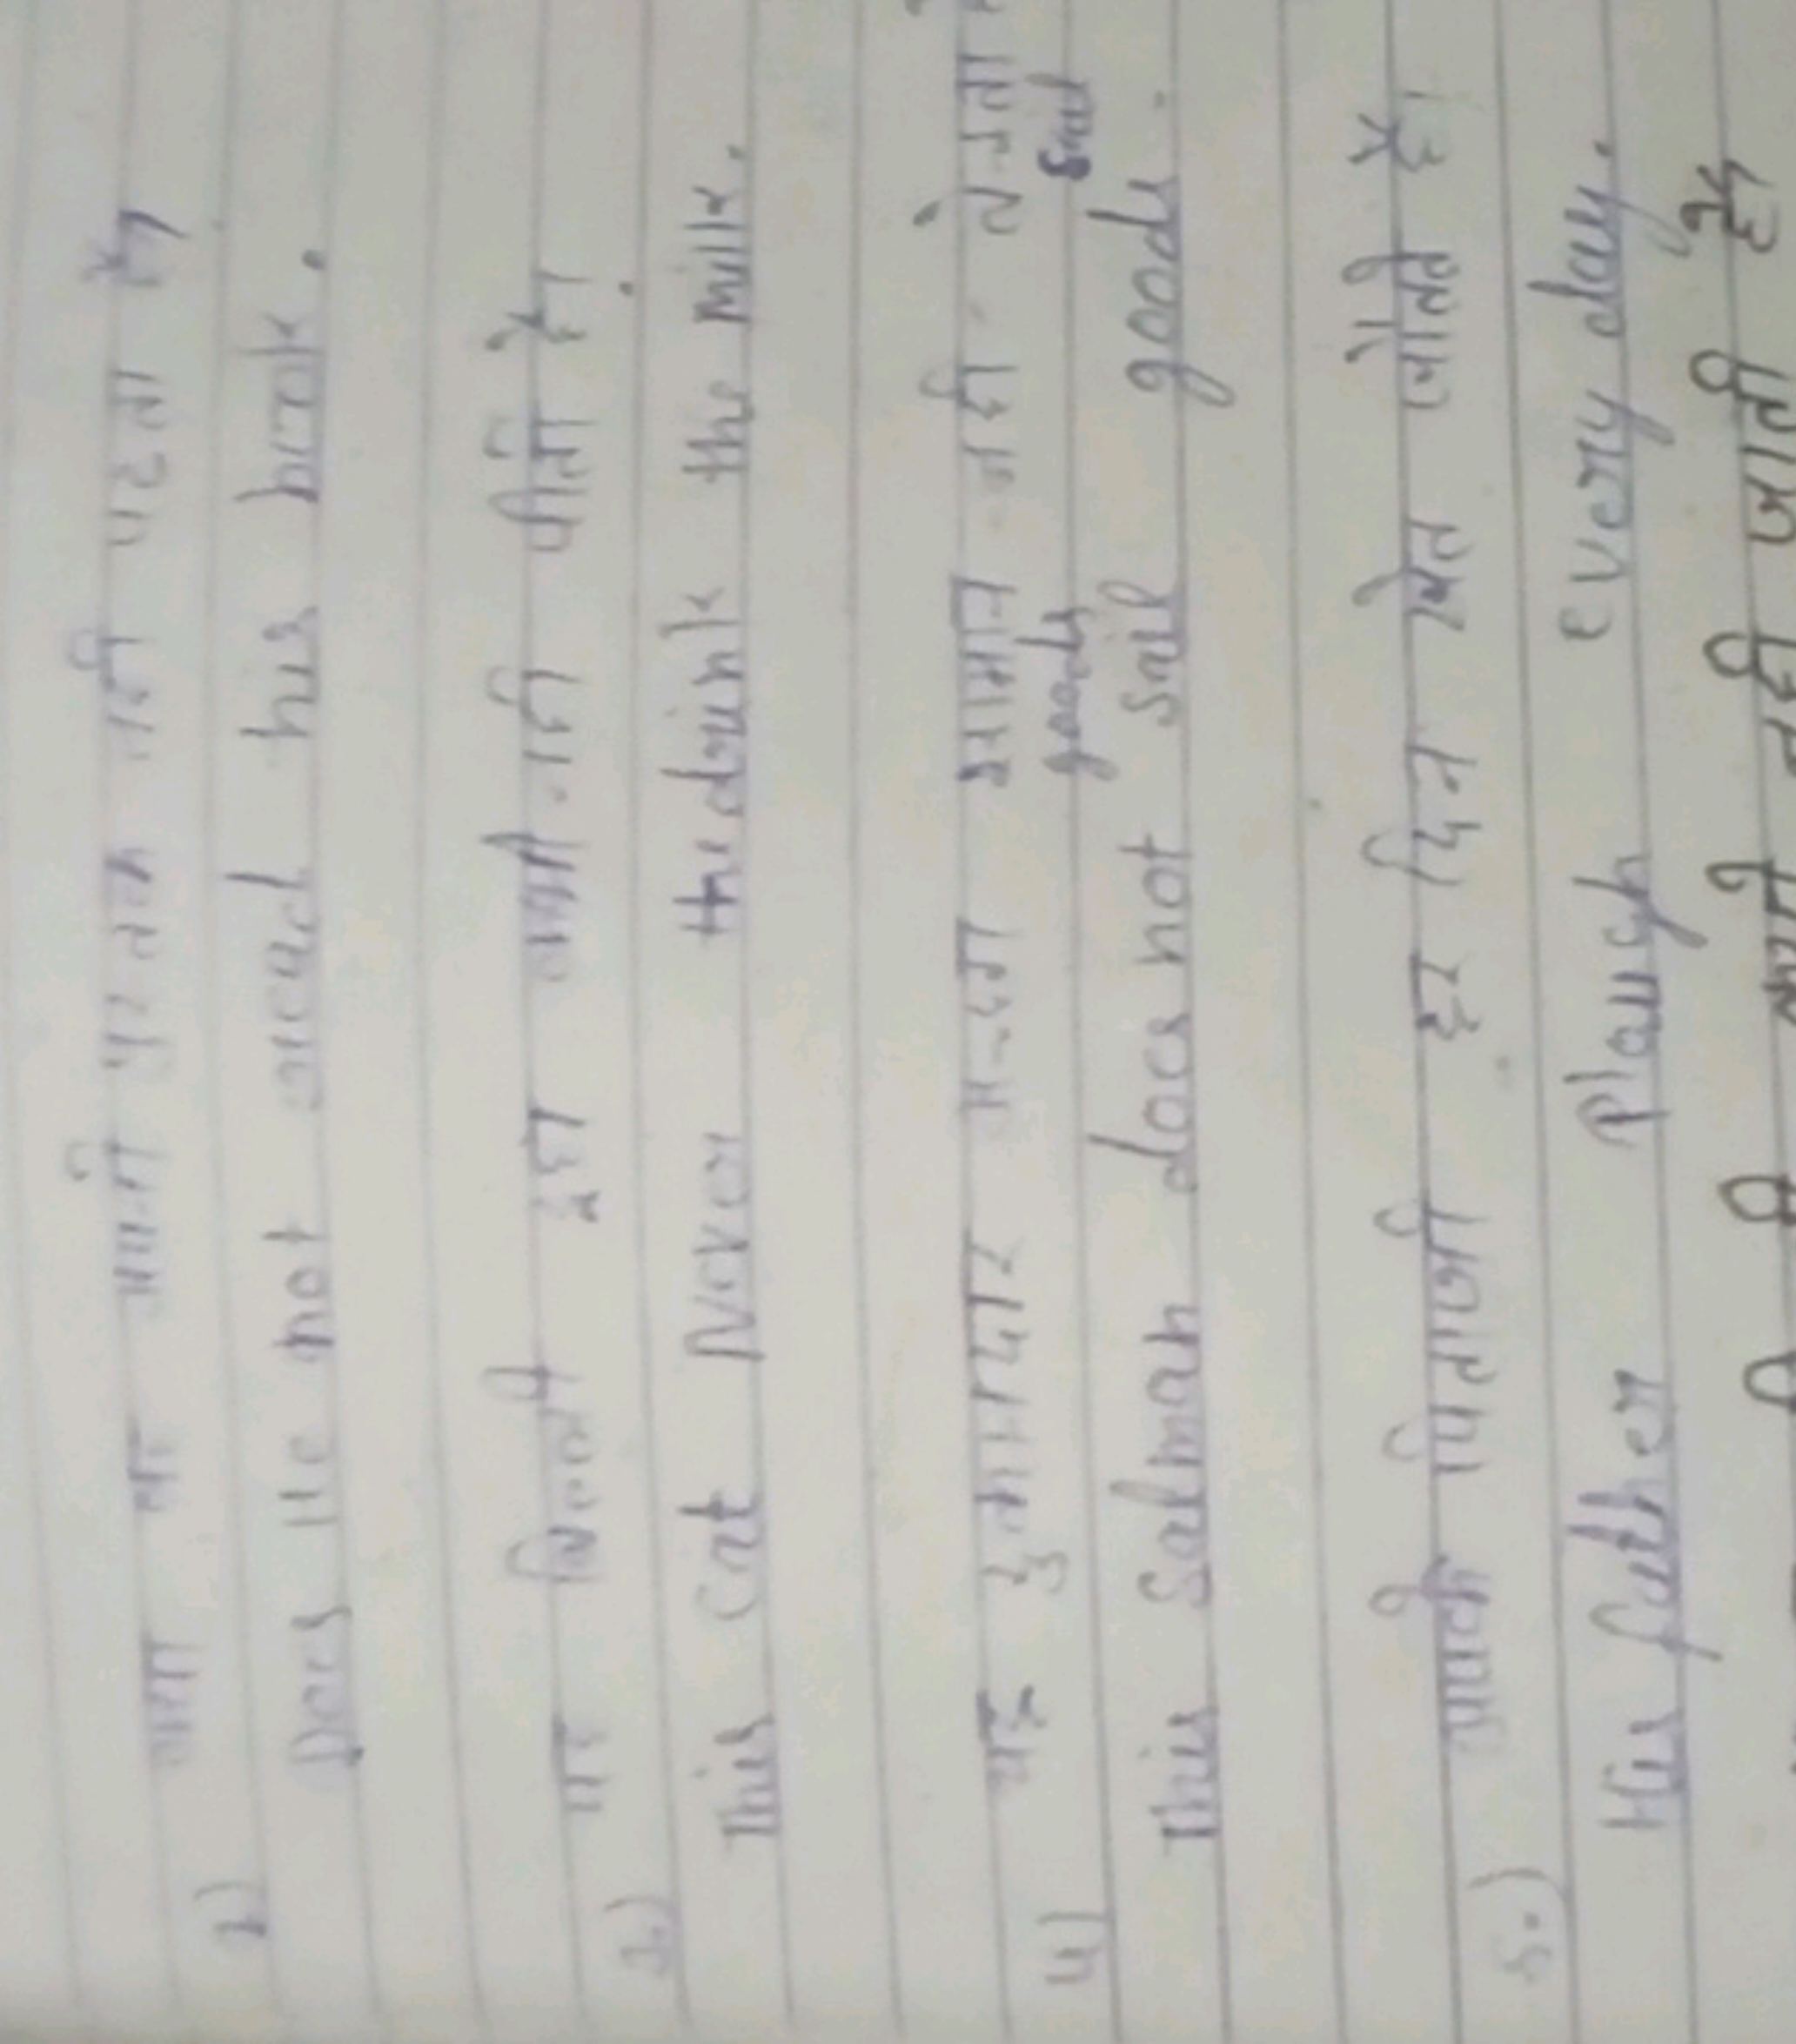 2) क्या वह अपनी पुस्तक नही पढता है
Does He not read his book.
3.) यह बिल्ली दूध कभी नही पीती है।
This cat Never the drink the milk.
4) यह दुकानदार गन्दा सामान नही बेचता
goods sail
This Salman does not sail goods.
5.) आपके पिताजी हर दिन खेत जोतते है।
His father Plough every day.
नही जाती है